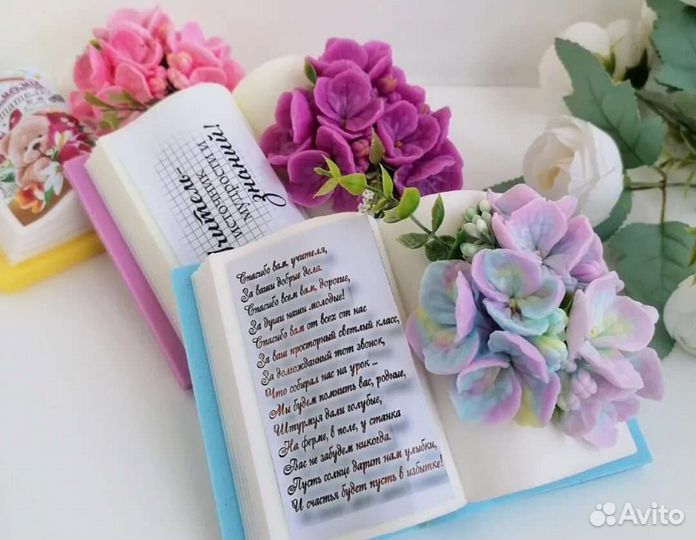 Учитель-
источник
мудрости и
знаний!
Спасибо вам, учителя,
За ваши добрые дела.
Спасибо всем вам, дорогие,
За души наши молодые!
Спасибо вам от всех от нас
За ваш просторный светлый класс,
За долгожданный тот звонок,
Что собирал нас на урок...
Мы будем помнить вас, родные,
Штурмуя дали голубые,
На ферме, в поле, у станка
Вас не забудем никогда.
Пусть солнце дарит нам улыбки,
И счастья будет пусть в избытке!
Avito